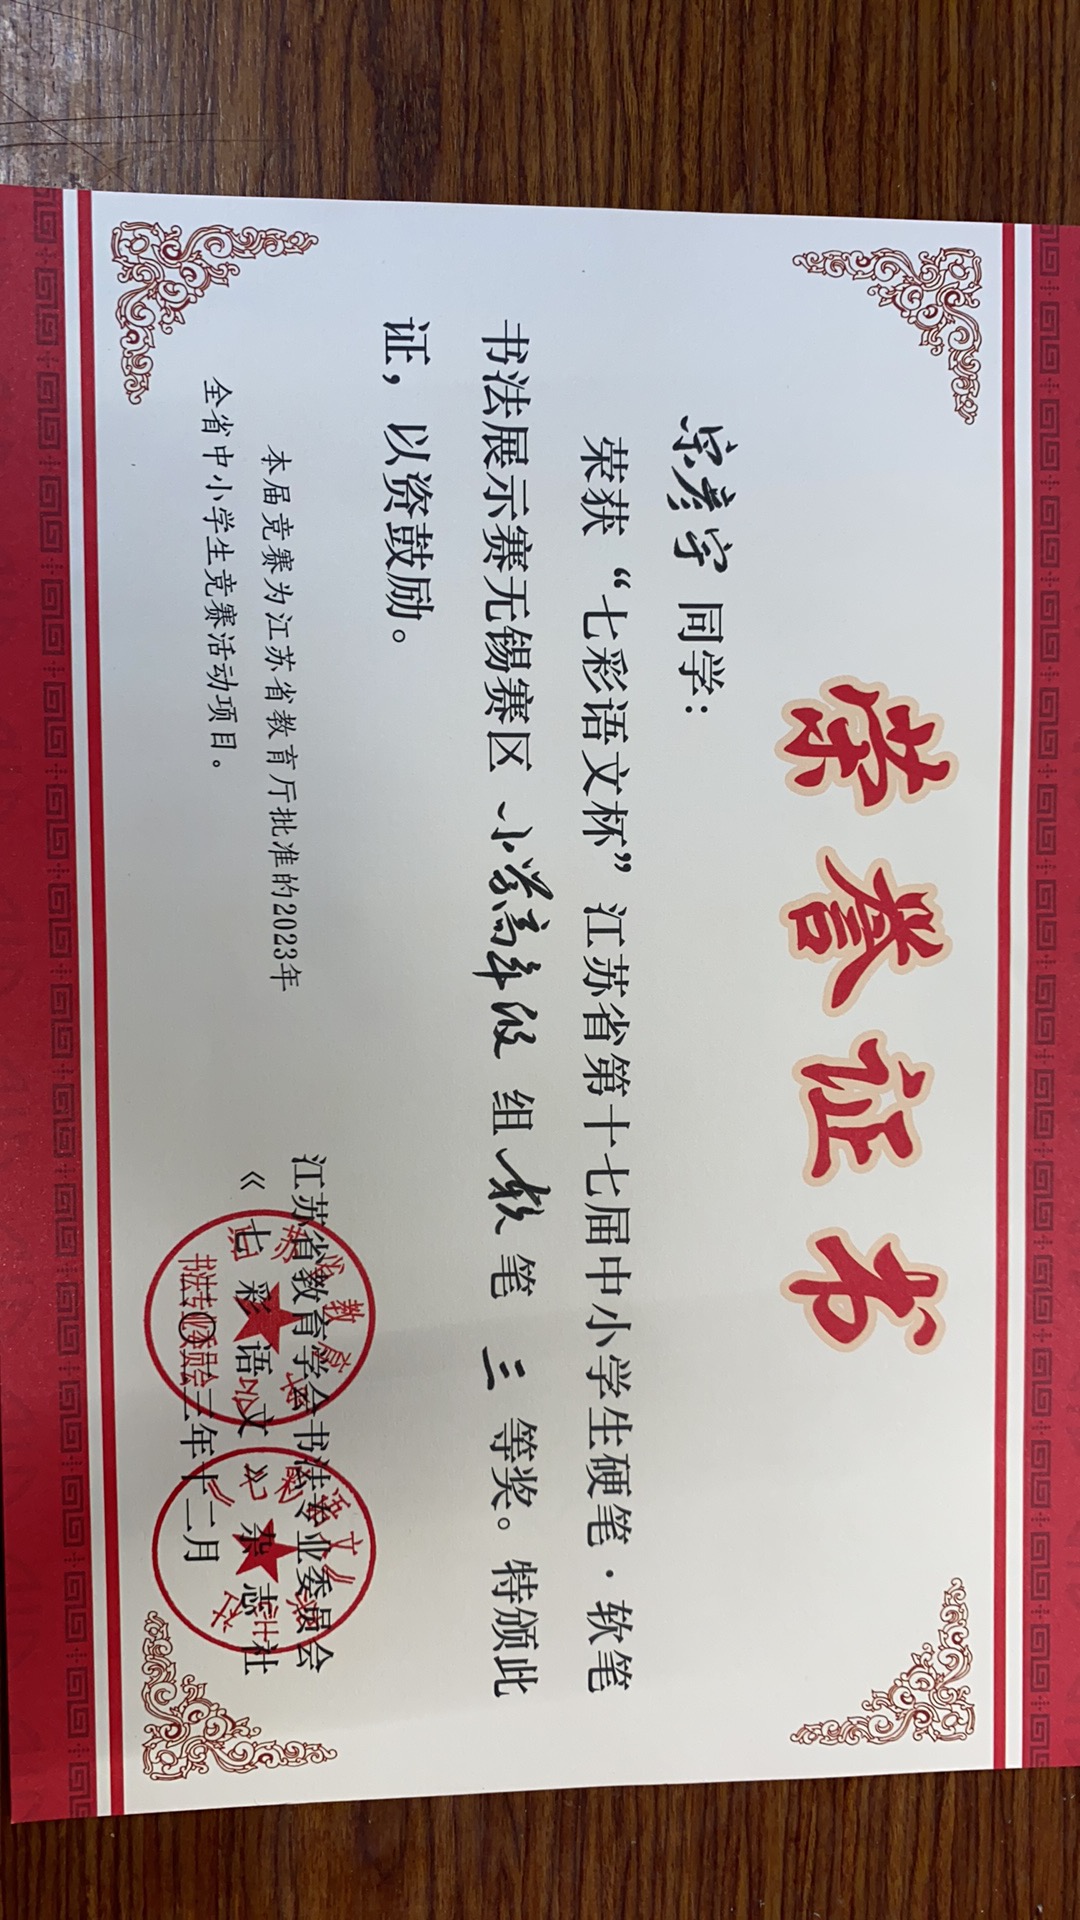 荣誉证书
宗彦宇 同学：
荣获“七彩语文杯”江苏省第十七届中小学生硬笔·软笔
书法展示赛无锡赛区 小学高年级 组 软 笔 三 等奖。特颁此
证，以资鼓励。
本届竞赛为江苏省教育厅批准的2023年
全省中小学生竞赛活动项目。
江苏省教育学会书法专业委员会
《七彩语文》杂志社
三年十二月
书法专业委员会